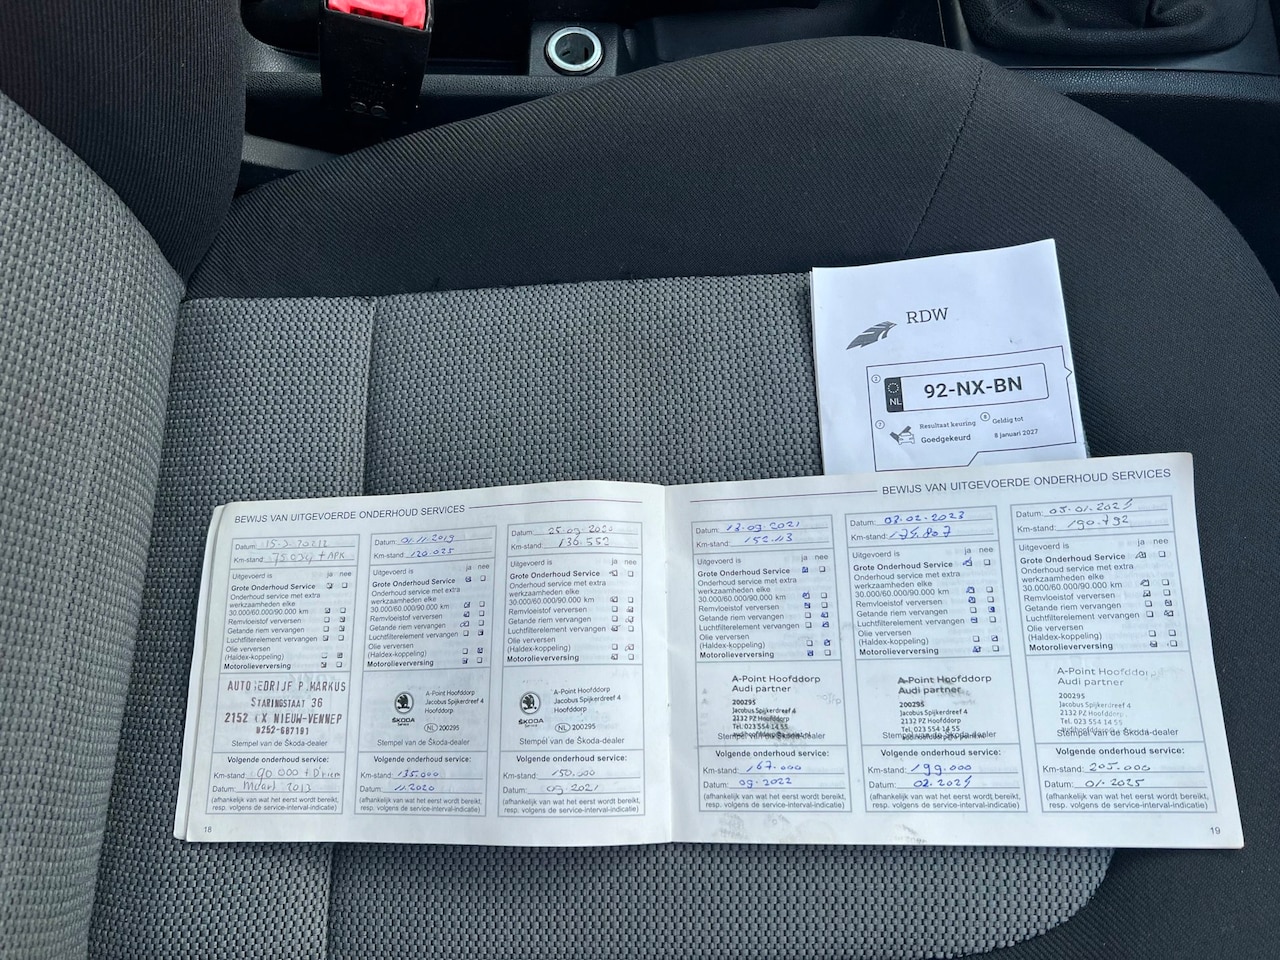 RDW
2
NL
92-NX-BN
7
Resultaat keuring
Goedgekeurd
8
Geldig tot
8 januari 2027
BEWIJS VAN UITGEVOERDE ONDERHOUD SERVICES
Datum:
Km-stand: + APK
Uitgevoerd is ja nee
Grote Onderhoud Service
Onderhoud service met extra
werkzaamheden elke
30.000/60.000/90.000 km
Remvloeistof verversen
Getande riem vervangen
Luchtfilterelement vervangen
Olie verversen
(Haldex-koppeling)
Motorolieverversing
AUTOBEDRIJF P. MARKUS
STARINGSTAAT 36
2152 CX NIEUW-VENNEP
0252-687191
Stempel van de Škoda-dealer
Volgende onderhoud service:
Km-stand: 90 000 + D'riem
Datum: Maart 2013
(afhankelijk van wat het eerst wordt bereikt,
resp. volgens de service-interval-indicatie)
18
Datum: 01.11.2019
Km-stand: 120.025
Uitgevoerd is ja nee
Grote Onderhoud Service
Onderhoud service met extra
werkzaamheden elke
30.000/60.000/90.000 km
Remvloeistof verversen
Getande riem vervangen
Luchtfilterelement vervangen
Olie verversen
(Haldex-koppeling)
Motorolieverversing
ŠKODA
Service
A-Point Hoofddorp
Jacobus Spijkerdreef 4
Hoofddorp
NL 200295
Stempel van de Škoda-dealer
Volgende onderhoud service:
Km-stand: 135.000
Datum: 11.2020
(afhankelijk van wat het eerst wordt bereikt,
resp. volgens de service-interval-indicatie)
Datum: 25.09.2020
Km-stand: 136.552
Uitgevoerd is ja nee
Grote Onderhoud Service
Onderhoud service met extra
werkzaamheden elke
30.000/60.000/90.000 km
Remvloeistof verversen
Getande riem vervangen
Luchtfilterelement vervangen
Olie verversen
(Haldex-koppeling)
Motorolieverversing
ŠKODA
Service
A-Point Hoofddorp
Jacobus Spijkerdreef 4
Hoofddorp
NL 200295
Stempel van de Škoda-dealer
Volgende onderhoud service:
Km-stand: 150.000
Datum: 09.2021
(afhankelijk van wat het eerst wordt bereikt,
resp. volgens de service-interval-indicatie)
BEWIJS VAN UITGEVOERDE ONDERHOUD SERVICES
Datum: 13.09.2021
Km-stand:
Uitgevoerd is ja nee
Grote Onderhoud Service
Onderhoud service met extra
werkzaamheden elke
30.000/60.000/90.000 km
Remvloeistof verversen
Getande riem vervangen
Luchtfilterelement vervangen
Olie verversen
(Haldex-koppeling)
Motorolieverversing
A-Point Hoofddorp
Audi partner
200295
Jacobus Spijkerdreef 4
2132 PZ Hoofddorp
Tel. 023 554 14 55
Stempel van de Škoda-dealer
Volgende onderhoud service:
Km-stand: 167.000
Datum: 09.2022
(afhankelijk van wat het eerst wordt bereikt,
resp. volgens de service-interval-indicatie)
Datum: 03.02.2023
Km-stand: 174.807
Uitgevoerd is ja nee
Grote Onderhoud Service
Onderhoud service met extra
werkzaamheden elke
30.000/60.000/90.000 km
Remvloeistof verversen
Getande riem vervangen
Luchtfilterelement vervangen
Olie verversen
(Haldex-koppeling)
Motorolieverversing
A-Point Hoofddorp
Audi partner
200295
Jacobus Spijkerdreef 4
2132 PZ Hoofddorp
Tel. 023 554 14 55
Stempel van de Škoda-dealer
Volgende onderhoud service:
Km-stand: 199.000
Datum: 02.2024
(afhankelijk van wat het eerst wordt bereikt,
resp. volgens de service-interval-indicatie)
Datum: 05.01.2024
Km-stand: 190.792
Uitgevoerd is ja nee
Grote Onderhoud Service
Onderhoud service met extra
werkzaamheden elke
30.000/60.000/90.000 km
Remvloeistof verversen
Getande riem vervangen
Luchtfilterelement vervangen
Olie verversen
(Haldex-koppeling)
Motorolieverversing
A-Point Hoofddorp
Audi partner
200295
Jacobus Spijkerdreef 4
2132 PZ Hoofddorp
Tel. 023 554 14 55
Stempel van de Škoda-dealer
Volgende onderhoud service:
Km-stand: 205.000
Datum: 01.2025
(afhankelijk van wat het eerst wordt bereikt,
resp. volgens de service-interval-indicatie)
19